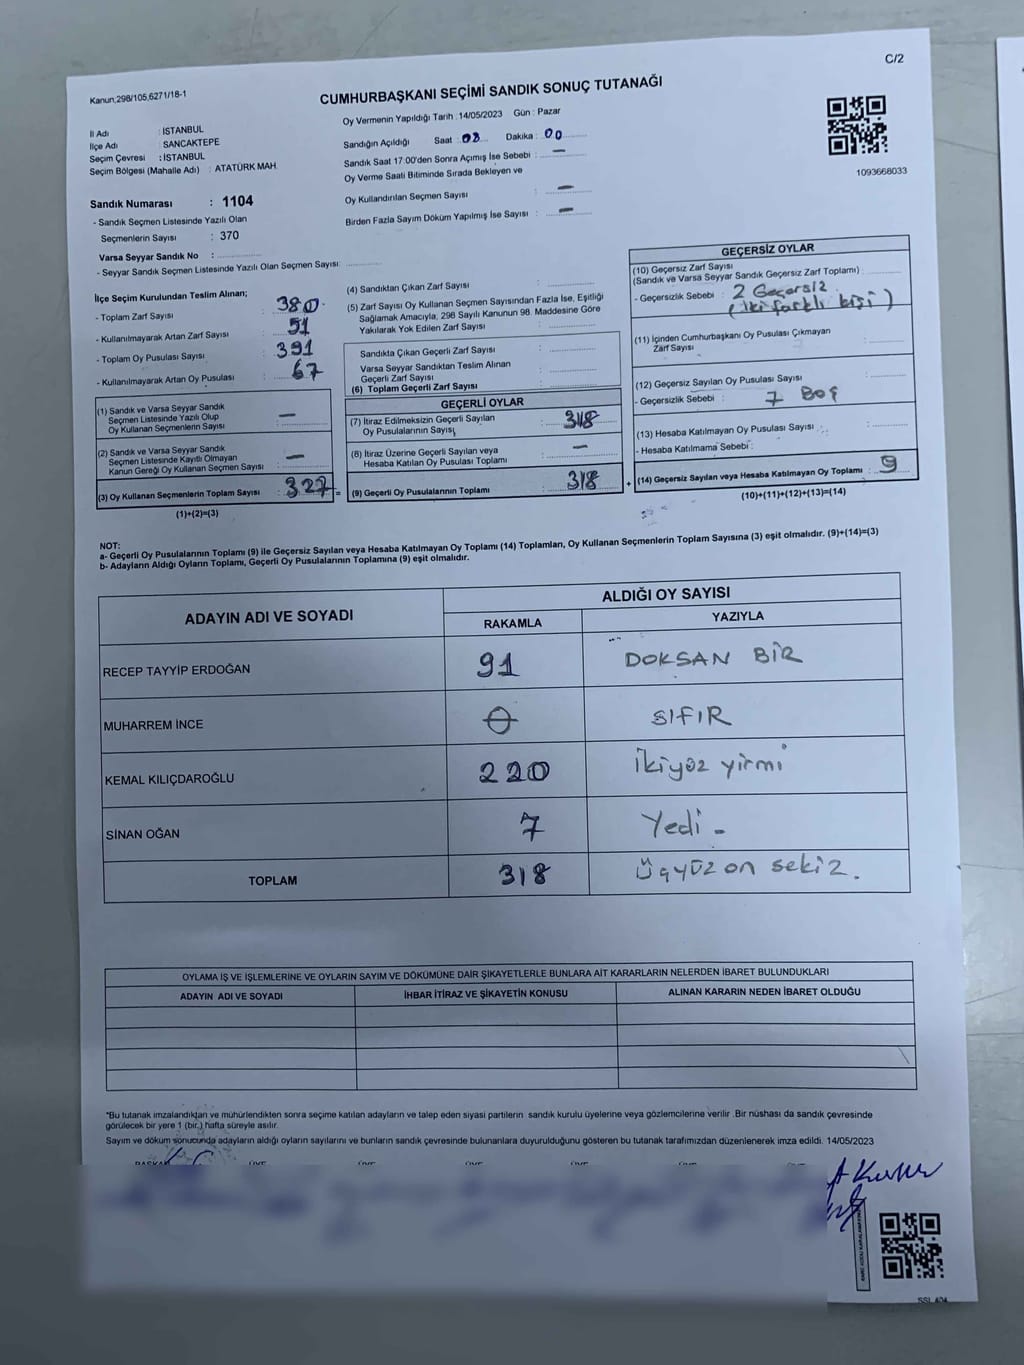 C/2
Kanun,298/105,6271/18-1
CUMHURBAŞKANI SEÇİMİ SANDIK SONUÇ TUTANAĞI
İl Adı : İSTANBUL
İlçe Adı : SANCAKTEPE
Seçim Çevresi : İSTANBUL
Seçim Bölgesi (Mahalle Adı) : ATATÜRK MAH.
Sandık Numarası : 1104
- Sandık Seçmen Listesinde Yazılı Olan
Seçmenlerin Sayısı : 370
Varsa Seyyar Sandık No :
- Seyyar Sandık Seçmen Listesinde Yazılı Olan Seçmen Sayısı:
Oy Vermenin Yapıldığı Tarih : 14/05/2023 Gün : Pazar
Sandığın Açıldığı Saat : 08 Dakika : 00
Sandık Saat 17:00'den Sonra Açımış İse Sebebi : —
Oy Verme Saati Bitiminde Sırada Bekleyen ve
Oy Kullandırılan Seçmen Sayısı : —
Birden Fazla Sayım Döküm Yapılmış İse Sayısı : —
1093668033
İlçe Seçim Kurulundan Teslim Alınan;
- Toplam Zarf Sayısı : 380
- Kullanılmayarak Artan Zarf Sayısı : 51
- Toplam Oy Pusulası Sayısı : 391
- Kullanılmayarak Artan Oy Pusulası : 67
(1) Sandık ve Varsa Seyyar Sandık
Seçmen Listesinde Yazılı Olup
Oy Kullanan Seçmenlerin Sayısı : —
(2) Sandık ve Varsa Seyyar Sandık
Seçmen Listesinde Kayıtlı Olmayan
Kanun Gereği Oy Kullanan Seçmen Sayısı : —
(3) Oy Kullanan Seçmenlerin Toplam Sayısı : 327 =
(1)+(2)=(3)
(4) Sandıktan Çıkan Zarf Sayısı :
(5) Zarf Sayısı Oy Kullanan Seçmen Sayısından Fazla İse, Eşitliği
Sağlamak Amacıyla, 298 Sayılı Kanunun 98. Maddesine Göre
Yakılarak Yok Edilen Zarf Sayısı :
Sandıkta Çıkan Geçerli Zarf Sayısı :
Varsa Seyyar Sandıktan Teslim Alınan
Geçerli Zarf Sayısı :
(6) Toplam Geçerli Zarf Sayısı :
GEÇERLİ OYLAR
(7) İtiraz Edilmeksizin Geçerli Sayılan
Oy Pusulalarının Sayısı : 318
(8) İtiraz Üzerine Geçerli Sayılan veya
Hesaba Katılan Oy Pusulası Toplamı : —
(9) Geçerli Oy Pusulalarının Toplamı : 318 +
GEÇERSİZ OYLAR
(10) Geçersiz Zarf Sayısı
(Sandık ve Varsa Seyyar Sandık Geçersiz Zarf Toplamı) :
- Geçersizlik Sebebi : 2 Geçersiz
(iki farklı kişi)
(11) İçinden Cumhurbaşkanı Oy Pusulası Çıkmayan
Zarf Sayısı :
(12) Geçersiz Sayılan Oy Pusulası Sayısı :
- Geçersizlik Sebebi : 7 Boş
(13) Hesaba Katılmayan Oy Pusulası Sayısı :
- Hesaba Katılmama Sebebi :
(14) Geçersiz Sayılan veya Hesaba Katılmayan Oy Toplamı : 9
(10)+(11)+(12)+(13)=(14)
NOT:
a- Geçerli Oy Pusulalarının Toplamı (9) ile Geçersiz Sayılan veya Hesaba Katılmayan Oy Toplamı (14) Toplamları, Oy Kullanan Seçmenlerin Toplam Sayısına (3) eşit olmalıdır. (9)+(14)=(3)
b- Adayların Aldığı Oyların Toplamı, Geçerli Oy Pusulalarının Toplamına (9) eşit olmalıdır.
ADAYIN ADI VE SOYADI
ALDIĞI OY SAYISI
RAKAMLA YAZIYLA
RECEP TAYYİP ERDOĞAN 91 DOKSAN BİR
MUHARREM İNCE 0 SIFIR
KEMAL KILIÇDAROĞLU 220 İkiyüz yirmi
SİNAN OĞAN 7 Yedi -
TOPLAM 318 Üçyüz on sekiz.
OYLAMA İŞ VE İŞLEMLERİNE VE OYLARIN SAYIM VE DÖKÜMÜNE DAİR ŞİKAYETLERLE BUNLARA AİT KARARLARIN NELERDEN İBARET BULUNDUKLARI
ADAYIN ADI VE SOYADI İHBAR İTİRAZ VE ŞİKAYETİN KONUSU ALINAN KARARIN NEDEN İBARET OLDUĞU
*Bu tutanak imzalandıktan ve mühürlendikten sonra seçime katılan adayların ve talep eden siyasi partilerin sandık kurulu üyelerine veya gözlemcilerine verilir .Bir nüshası da sandık çevresinde
görülecek bir yere 1 (bir.) hafta süreyle asılır.
Sayım ve döküm sonucunda adayların aldığı oyların sayılarını ve bunların sandık çevresinde bulunanlara duyurulduğunu gösteren bu tutanak tarafımızdan düzenlenerek imza edildi. 14/05/2023